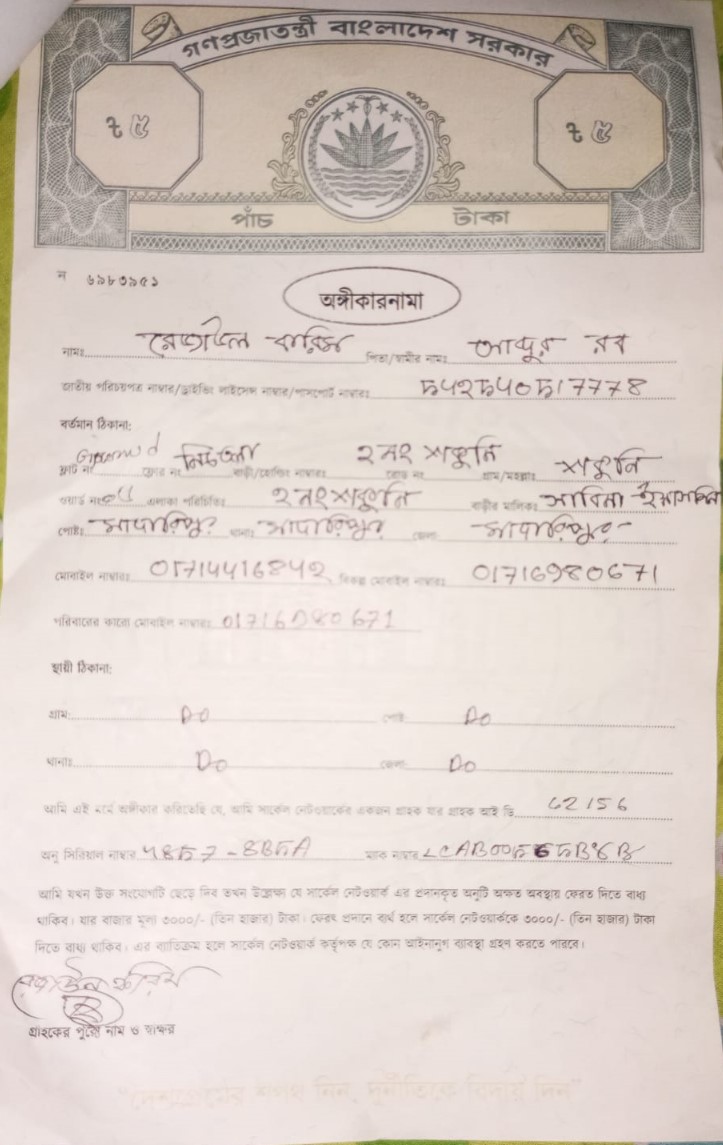 গণপ্রজাতন্ত্রী বাংলাদেশ সরকার
৳ ৫ ৳ ৫
পাঁচ টাকা
ন ৬৯৮৩৯৫১
অঙ্গীকারনামা
নামঃ পিতা/স্বামীর নামঃ আব্দুর রব
জাতীয় পরিচয়পত্র নাম্বার/ড্রাইভিং লাইসেন্স নাম্বার/পাসপোর্ট নাম্বারঃ
বর্তমান ঠিকানা:
ফ্লাট নং ফ্লোর নং বাড়ী/হোল্ডিং নাম্বারঃ ২নং শকুনি রোড নং গ্রাম/মহল্লাঃ শকুনি
ওয়ার্ড নংঃ এলাকা পরিচিতিঃ ২নং শকুনি বাড়ীর মালিকঃ
পোষ্টঃ মাদারীপুর থানাঃ মাদারীপুর জেলা মাদারীপুর
মোবাইল নাম্বারঃ 01714416842 বিকল্প মোবাইল নাম্বারঃ 01716980671
পরিবারের কারো মোবাইল নাম্বারঃ 01716980671
স্থায়ী ঠিকানা:
গ্রাম: Do পোষ্ট Do
থানাঃ Do জেলা Do
আমি এই মর্মে অঙ্গীকার করিতেছি যে, আমি সার্কেল নেটওয়ার্কের একজন গ্রাহক যার গ্রাহক আই ডি 62156
অনু সিরিয়াল নাম্বার ম্যাক নাম্বার
আমি যখন উক্ত সংযোগটি ছেড়ে দিব তখন উল্লেক্ষ্য যে সার্কেল নেটওয়ার্ক এর প্রদানকৃত অনুটি অক্ষত অবস্থায় ফেরত দিতে বাধ্য
থাকিব। যার বাজার মূল্য ৩০০০/- (তিন হাজার) টাকা। ফেরৎ প্রদানে ব্যর্থ হলে সার্কেল নেটওয়ার্ককে ৩০০০/- (তিন হাজার) টাকা
দিতে বাধ্য থাকিব। এর ব্যতিক্রম হলে সার্কেল নেটওয়ার্ক কর্তৃপক্ষ যে কোন আইনানুগ ব্যবস্থা গ্রহন করতে পারবে।
গ্রাহকের পুরো নাম ও স্বাক্ষর